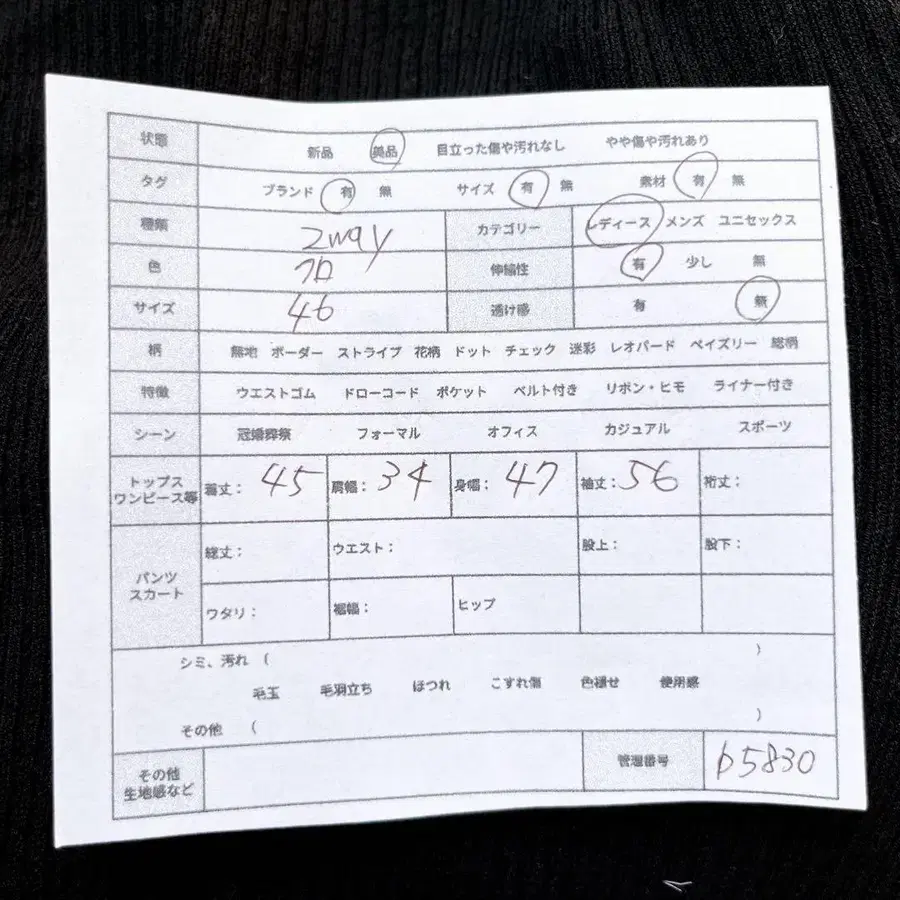 状態 新品 美品 目立った傷や汚れなし やや傷や汚れあり
タグ ブランド 有 無 サイズ 有 無 素材 有 無
種類 2way カテゴリー レディース メンズ ユニセックス
色 クロ 伸縮性 有 少し 無
サイズ 46 透け感 有 無
柄 無地 ボーダー ストライプ 花柄 ドット チェック 迷彩 レオパード ペイズリー 総柄
特徴 ウエストゴム ドローコード ポケット ベルト付き リボン・ヒモ ライナー付き
シーン 冠婚葬祭 フォーマル オフィス カジュアル スポーツ
トップス
ワンピース等 着丈: 45 肩幅: 34 身幅: 47 袖丈: 56 裄丈:
パンツ
スカート
総丈: ウエスト: 股上: 股下:
ワタリ: 裾幅: ヒップ
シミ、汚れ ( )
毛玉 毛羽立ち ほつれ こすれ傷 色褪せ 使用感
その他 ( )
その他
生地感など
管理番号 b5830